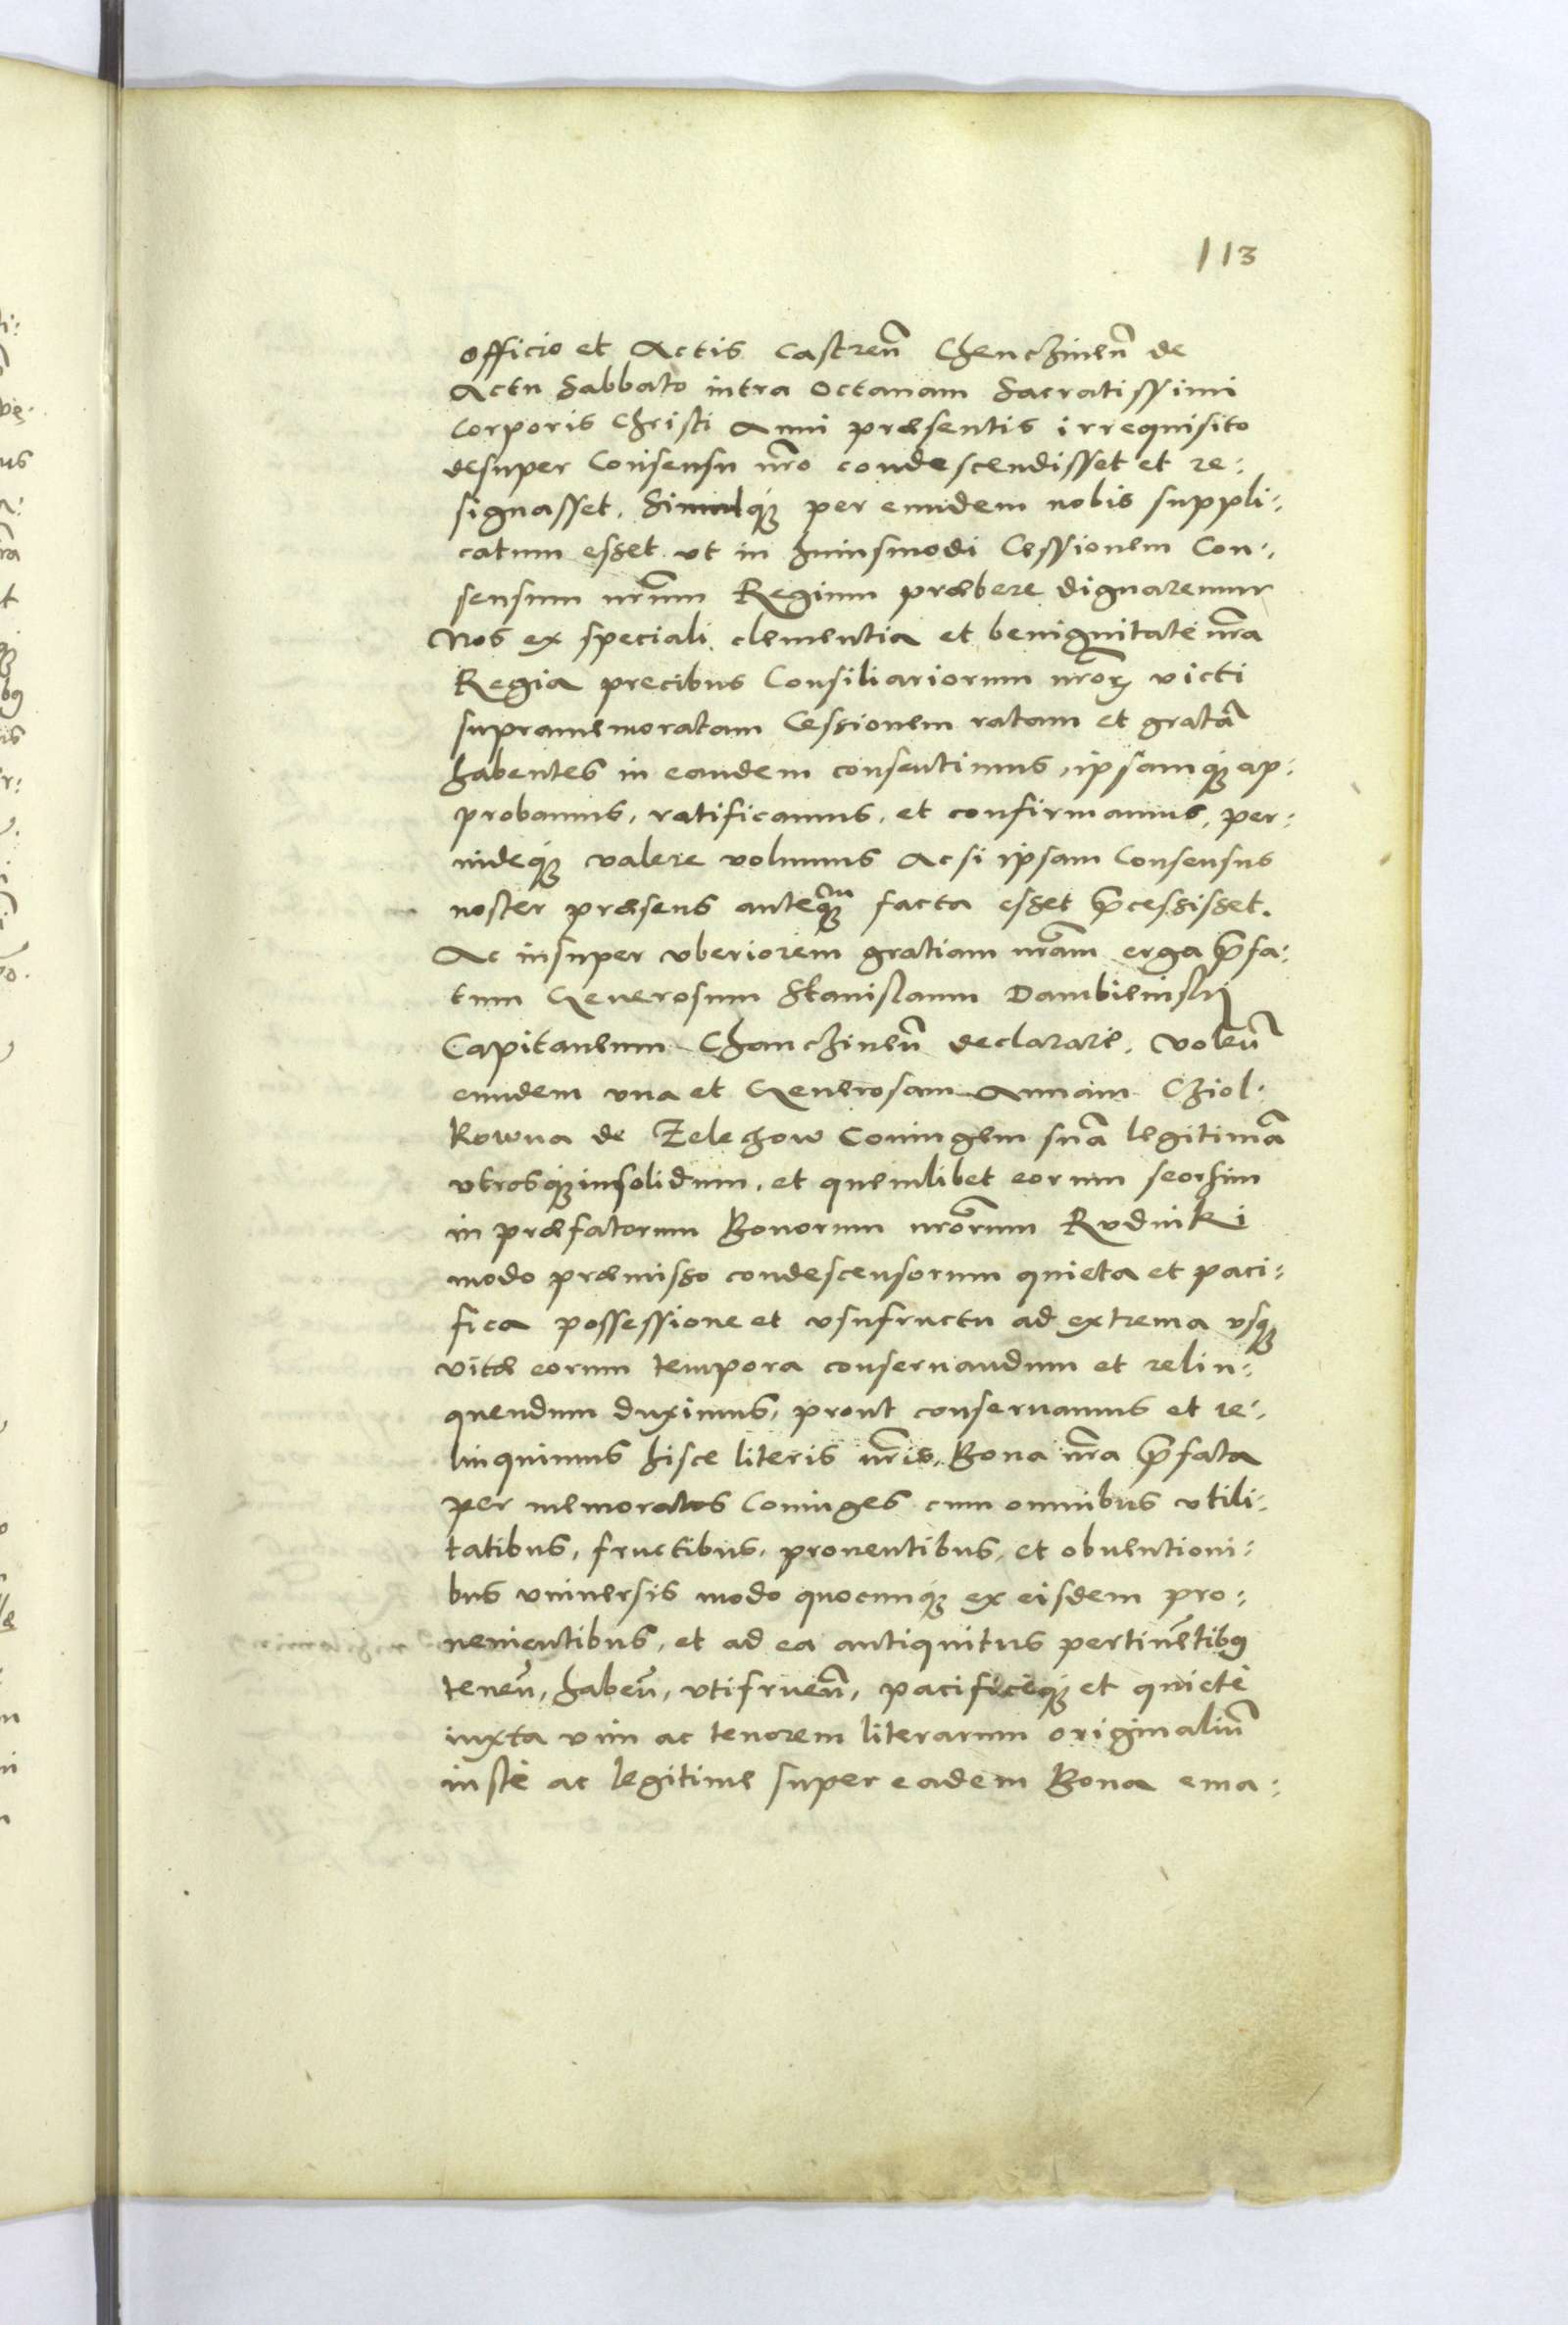 113
officio et Actis Castreñ Chencżineñ de
Actu Sabbato intra Octauam Sacratissimi
Corporis Christi Anni præsentis irrequisito
desuper Consensu nr̃o condescendisset et re:
signasset. Simulq́ꝫ per eundem nobis suppli:
catum esset vt in huiusmodi Cessionem Con:
sensum nr̃um Regium præbere dignaremur
Nos ex speciali clementia et benignitate nr̃a
Regia precibus Consiliariorum nr̃oꝝ victi
supramemoratam Cessionem ratam et gratã
habentes in eandem consentimus, ipsamq́ꝫ ap:
probamus, ratificamus, et confirmamus, per:
indeq́ꝫ valere volumus Ac si ipsam Consensus
noster præsens anteq̃ꝫ facta esset p̃cessisset.
Ac insuper vberiorem gratiam nr̃am erga p̃fa:
tum Generosum Stanislaum Dambienskij
Capitaneum Chancżineñ declarare, voleñ
eundem vna et Generosam Annam Cżiol:
kowna de Zelechow Coniugem suã legitimã
vtrosq́ꝫ insolidum, et quemlibet eorum seorsim
in præfatorum Bonorum nr̃orum Rudniki
modo præmisso condescensorum quieta et paci:
fica possessione et vsufructu ad extrema vsqꝫ
vitæ eorum tempora conseruandum et relin:
quendum duximus, prout conseruamus et re:
linquimus hisce literis nr̃is, Bona nr̃a p̃fata
per memoratos Coniuges cum omnibus vtili:
tatibus, fructibus, prouentibus, et obuentioni:
bus vniuersis modo quocunq́ꝫ ex eisdem pro:
uenientibus, et ad ea antiquitus pertinẽtibꝰ
teneñ, habeñ, vtifrueñ, pacificeq́ꝫ et quietè
iuxta vim ac tenorem literarum originaliũ
iustè ac legitime super eadem Bona ema: